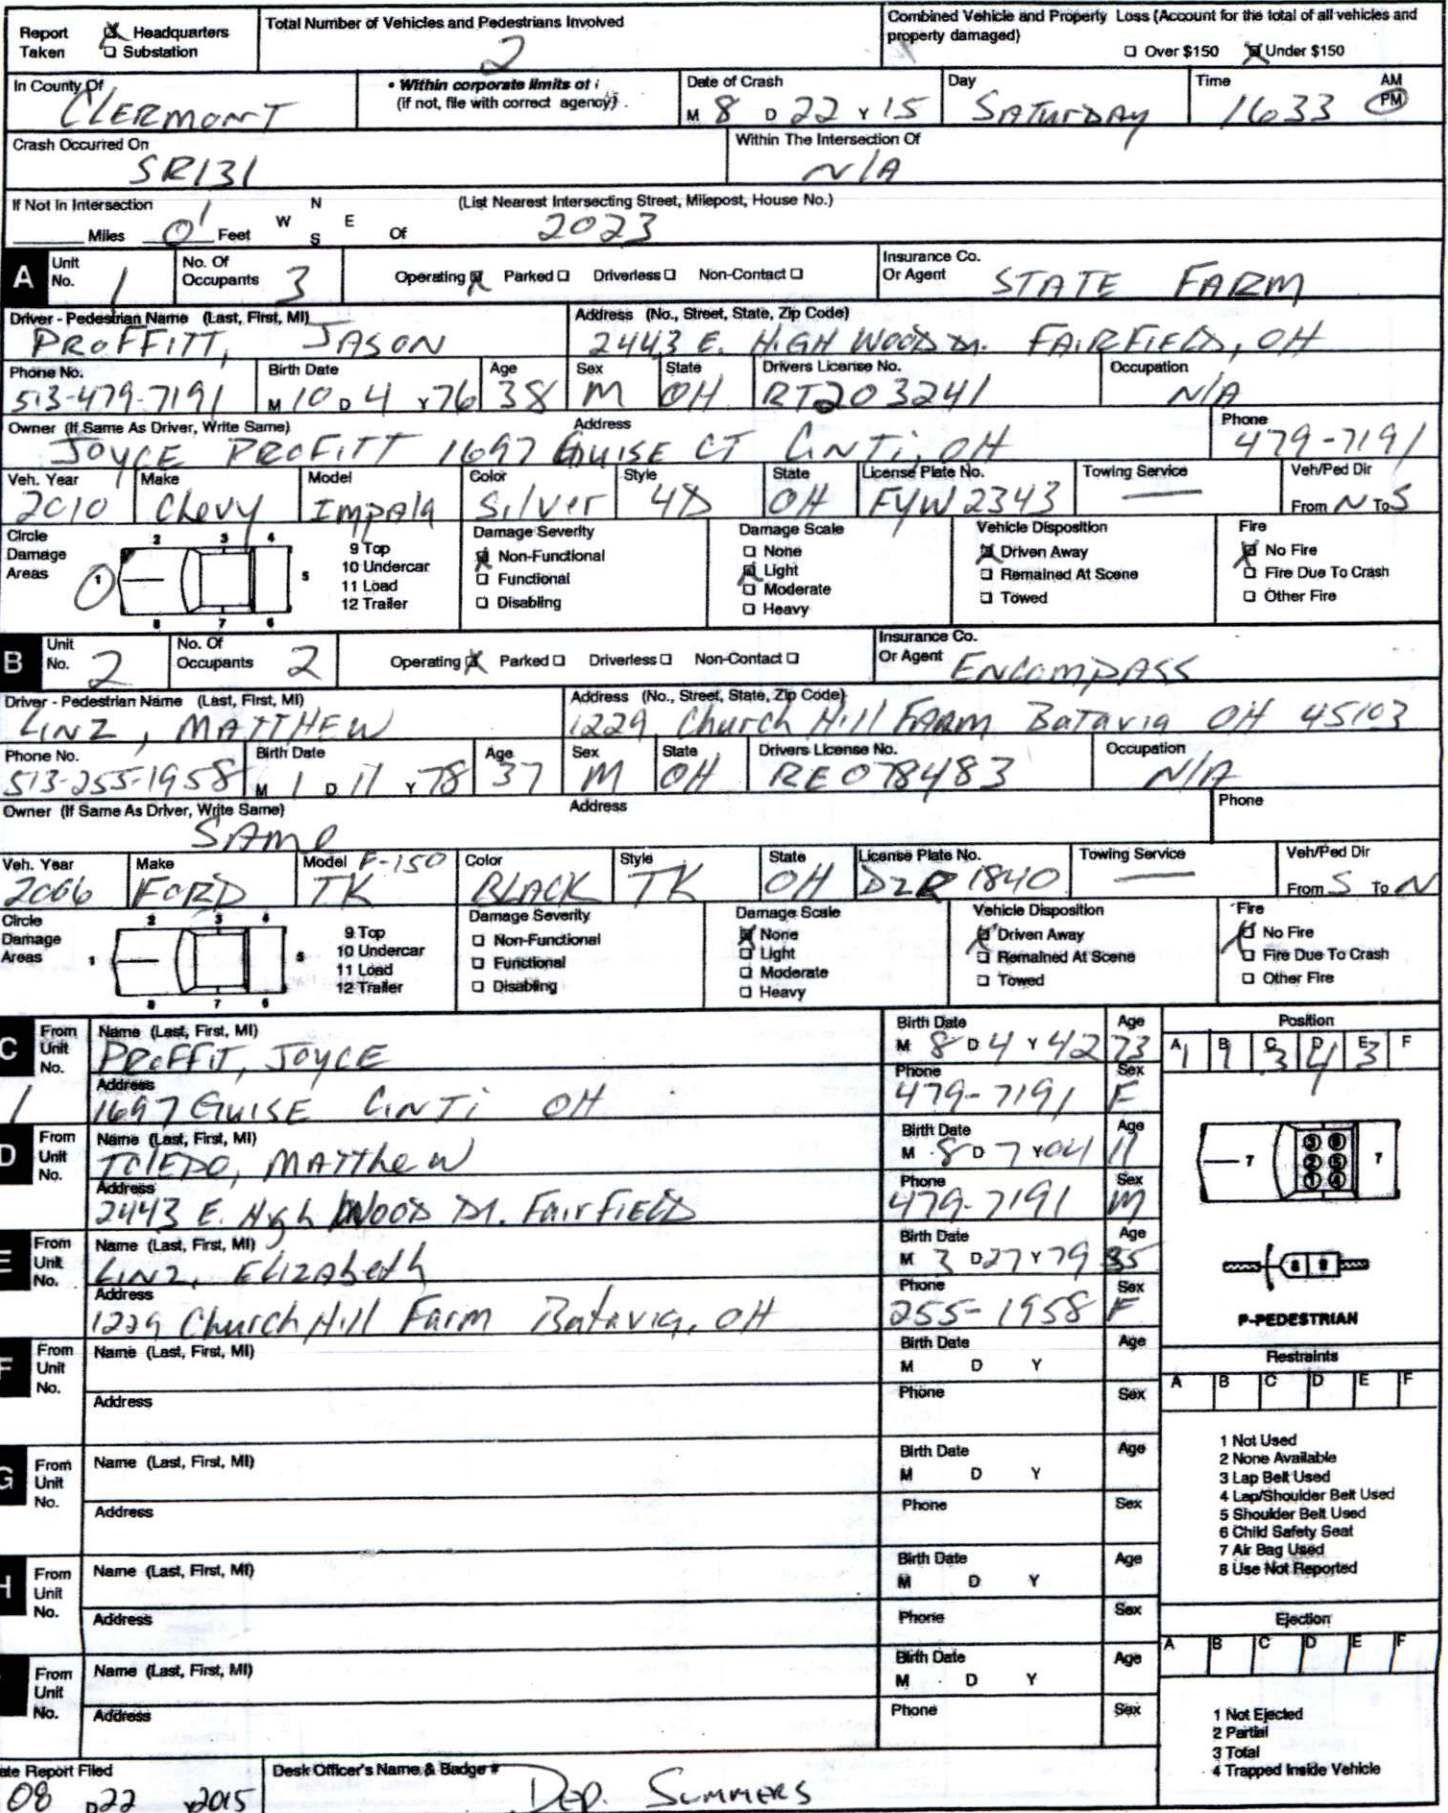 Report Taken ☒ Headquarters ☐ Substation
Total Number of Vehicles and Pedestrians Involved
2
Combined Vehicle and Property Loss (Account for the total of all vehicles and property damaged)
☐ Over $150 ☒ Under $150
In County Of
CLERMONT
• Within corporate limits of
(if not, file with correct agency)
Date of Crash
M 8 D 22 Y 15
Day
SATURDAY
Time AM PM
1633
Crash Occurred On
SR131
Within The Intersection Of
N/A
If Not In Intersection
Miles 0' Feet N W E S Of
(List Nearest Intersecting Street, Milepost, House No.)
2023
A Unit No. 1
No. Of Occupants 3
Operating ☒ Parked ☐ Driverless ☐ Non-Contact ☐
Insurance Co. Or Agent STATE FARM
Driver - Pedestrian Name (Last, First, MI)
PROFFITT, JASON
Address (No., Street, State, Zip Code)
2443 E. HIGH WOOD DR. FAIRFIELD, OH
Phone No. 513-479-7191
Birth Date M 10 D 4 Y 76
Age 38
Sex M
State OH
Drivers License No. RT203241
Occupation N/A
Owner (If Same As Driver, Write Same) Address
JOYCE PROFITT 1697 GUISE CT CINTI, OH
Phone 479-7191
Veh. Year 2010
Make Chevy
Model Impala
Color Silver
Style 4D
State OH
License Plate No. FYW2343
Towing Service —
Veh/Ped Dir From N To S
Circle Damage Areas
1 2 3 4 5 6 7 8
9 Top
10 Undercar
11 Load
12 Trailer
Damage Severity
☒ Non-Functional
☐ Functional
☐ Disabling
Damage Scale
☐ None
☒ Light
☐ Moderate
☐ Heavy
Vehicle Disposition
☒ Driven Away
☐ Remained At Scene
☐ Towed
Fire
☒ No Fire
☐ Fire Due To Crash
☐ Other Fire
B Unit No. 2
No. Of Occupants 2
Operating ☒ Parked ☐ Driverless ☐ Non-Contact ☐
Insurance Co. Or Agent ENCOMPASS
Driver - Pedestrian Name (Last, First, MI)
LINZ, MATTHEW
Address (No., Street, State, Zip Code)
1229 Church Hill FARM Batavia OH 45103
Phone No. 513-255-1958
Birth Date M 1 D 17 Y 78
Age 37
Sex M
State OH
Drivers License No. RE078483
Occupation N/A
Owner (If Same As Driver, Write Same) Address
SAME
Phone
Veh. Year 2006
Make FORD
Model F-150 TK
Color BLACK
Style TK
State OH
License Plate No. DZR1840
Towing Service —
Veh/Ped Dir From S To N
Circle Damage Areas
1 2 3 4 5 6 7 8
9 Top
10 Undercar
11 Load
12 Trailer
Damage Severity
☐ Non-Functional
☐ Functional
☐ Disabling
Damage Scale
☒ None
☐ Light
☐ Moderate
☐ Heavy
Vehicle Disposition
☒ Driven Away
☐ Remained At Scene
☐ Towed
Fire
☒ No Fire
☐ Fire Due To Crash
☐ Other Fire
C From Unit No. 1
Name (Last, First, MI)
PROFFIT, JOYCE
Birth Date M 8 D 4 Y 42
Age 73
Address
1697 GUISE CINTI OH
Phone 479-7191
Sex F
Position
A 1 B 1 C 3 D 4 E 3 F
D From Unit No.
Name (Last, First, MI)
TOLEDO, MATTHEW
Birth Date M 8 D 7 Y 04
Age 11
Address
2443 E. High WOOD DR. FairFIELD
Phone 479-7191
Sex M
7 3 6 2 5 1 4 7
E From Unit No.
Name (Last, First, MI)
LINZ, ELIZAbeth
Birth Date M 3 D 27 Y 79
Age 35
Address
1229 Church Hill Farm Batavia, OH
Phone 255-1958
Sex F
8 9
P-PEDESTRIAN
F From Unit No.
Name (Last, First, MI)
Birth Date M D Y
Age
Address
Phone
Sex
Restraints
A B C D E F
1 Not Used
2 None Available
3 Lap Belt Used
4 Lap/Shoulder Belt Used
5 Shoulder Belt Used
6 Child Safety Seat
7 Air Bag Used
8 Use Not Reported
G From Unit No.
Name (Last, First, MI)
Birth Date M D Y
Age
Address
Phone
Sex
H From Unit No.
Name (Last, First, MI)
Birth Date M D Y
Age
Address
Phone
Sex
Ejection
A B C D E F
From Unit No.
Name (Last, First, MI)
Birth Date M D Y
Age
Address
Phone
Sex
1 Not Ejected
2 Partial
3 Total
4 Trapped Inside Vehicle
ate Report Filed
08 D22 Y2015
Desk Officer's Name & Badge #
DEP. SUMMERS